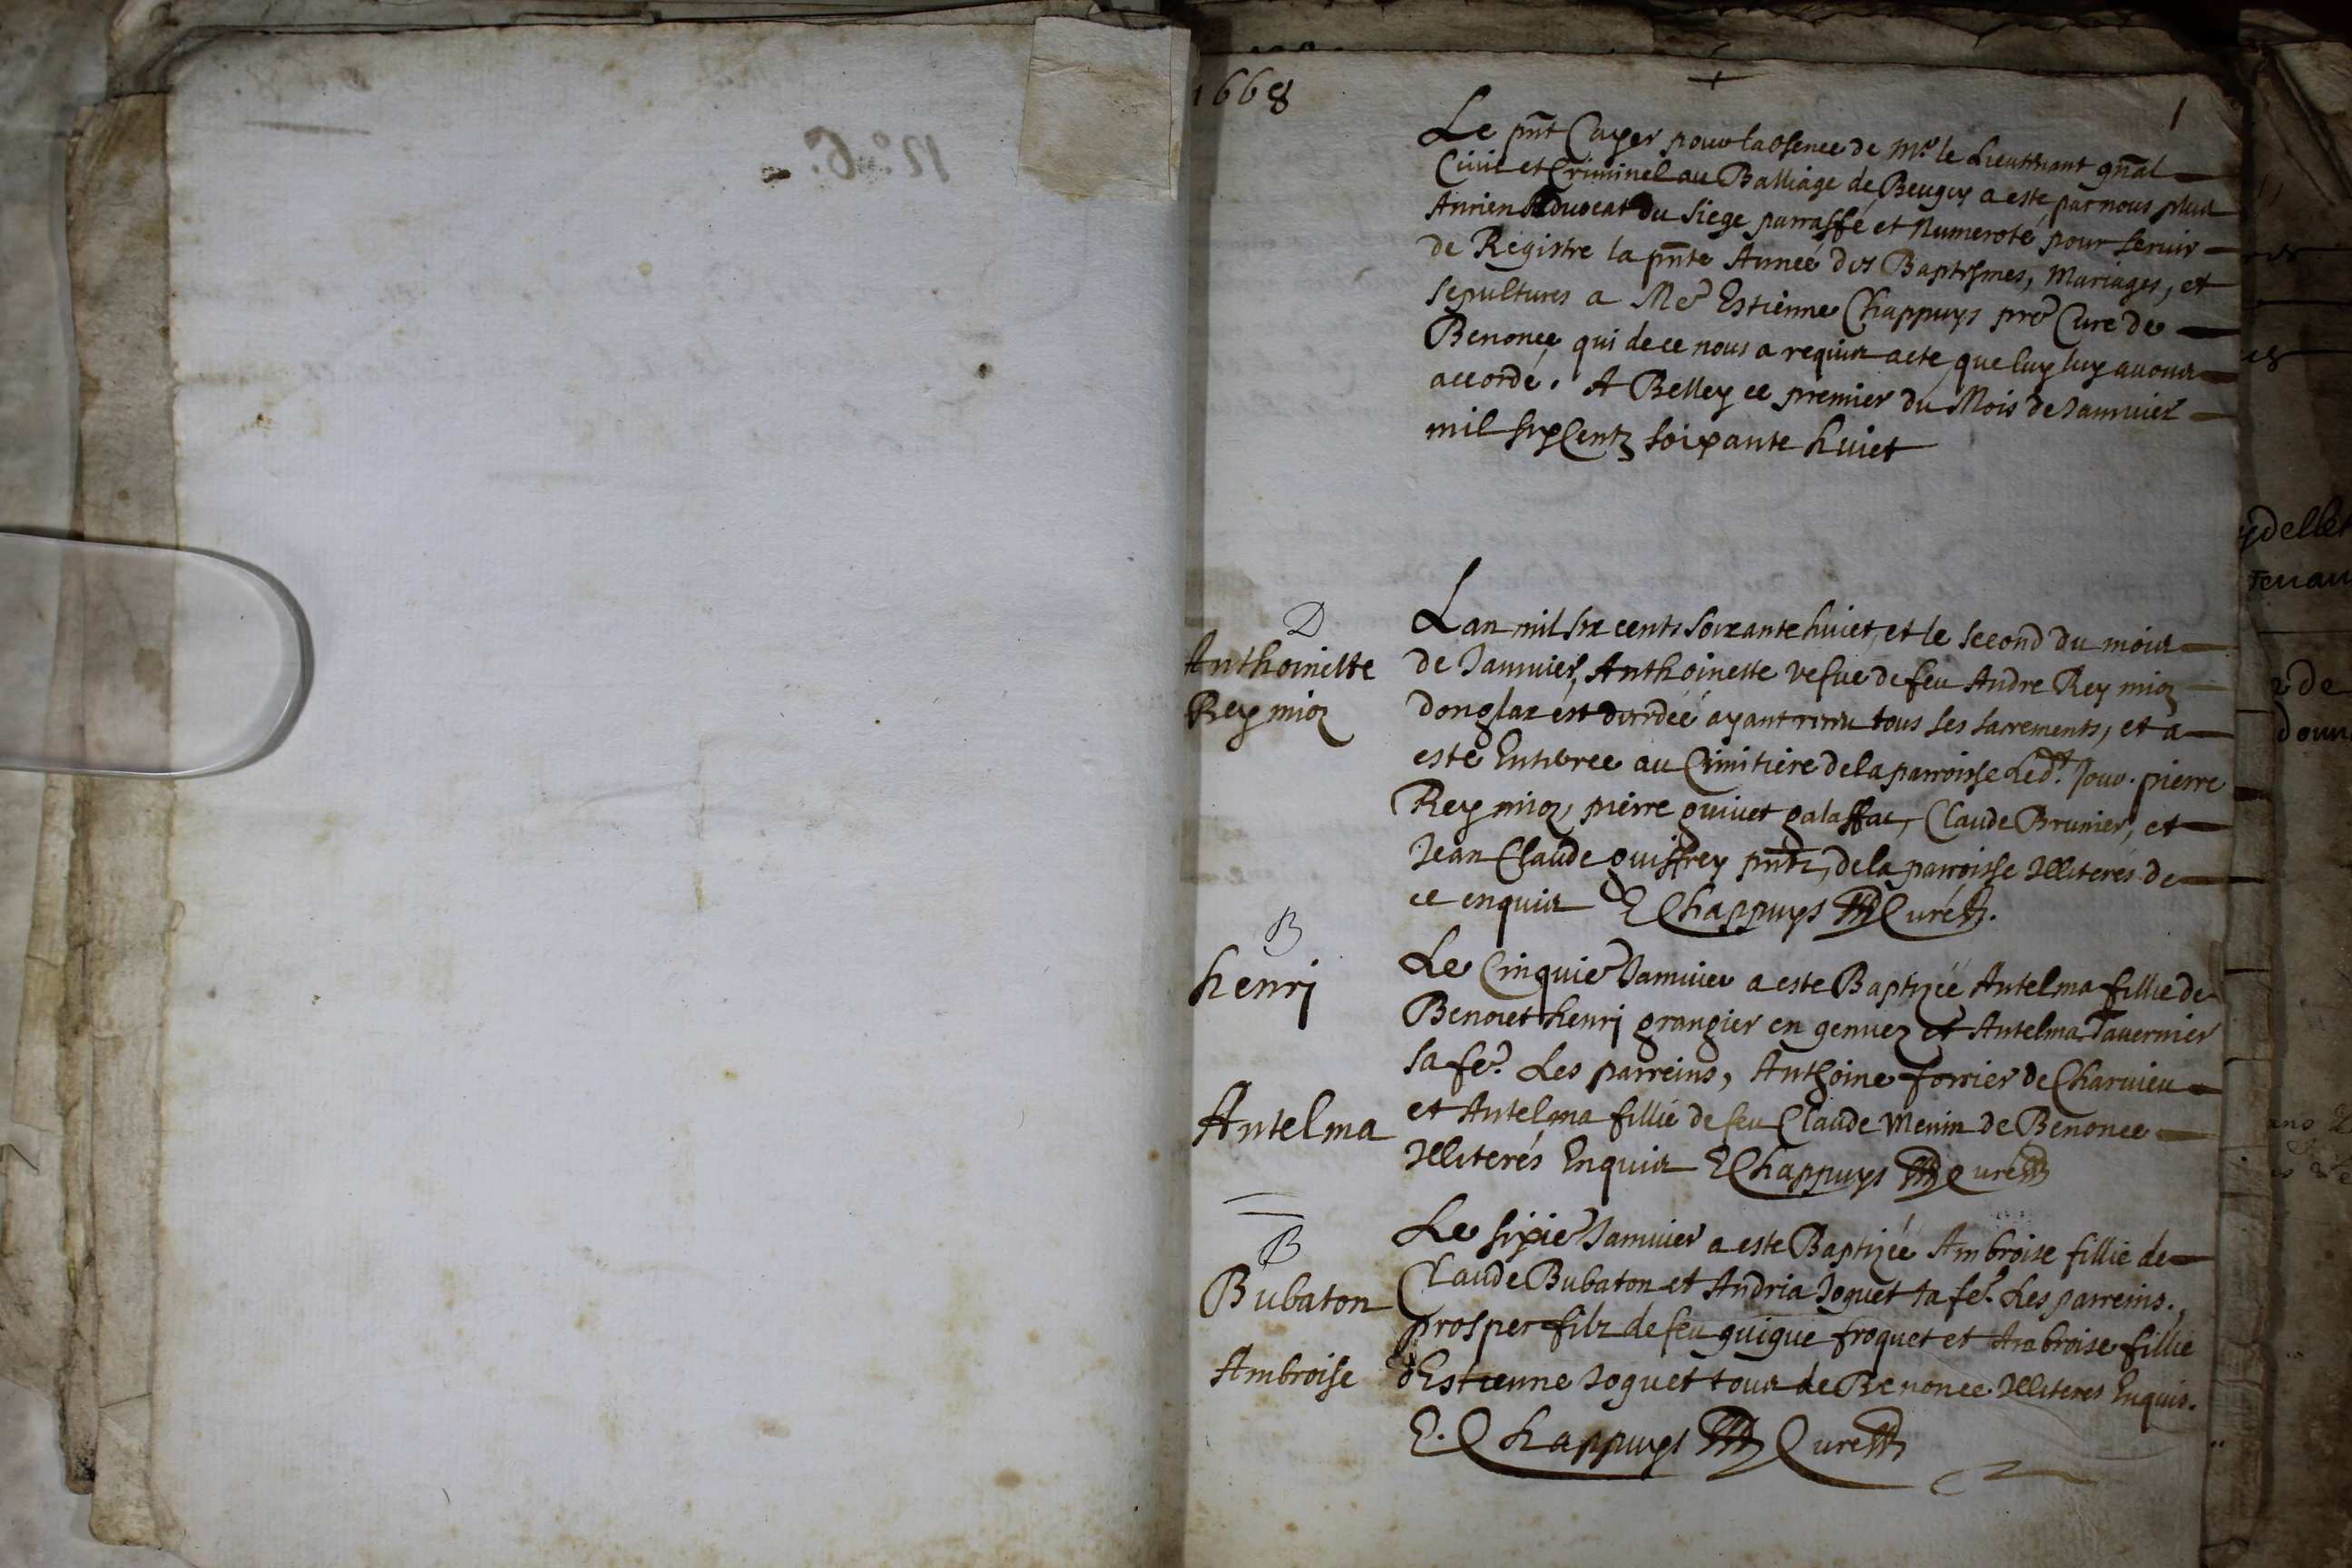 1668
1
Le pnt Cayer pour labsence de Mr le Lieutenant gnal
Civil et Criminel au Balliage de Beugey a esté par nous plus
Antien Advocat du siege parraffé et Numeroté pour servir
de Registre la pnte Année des Baptesmes, Mariages, et
sepultures a Mre Estienne Chappuys pre Curé de
Benonce, qui de ce nous a requis acte, que luy luy avons
accordé. A Belley ce premier du Mois de Janvier
mil six Centz soixante huict
D
Anthoinette
Reymioz
Lan mil six cents soixante huict, et le second du mois
de Janvier, Anthoinette vefve de feu Andre Reymioz
donglaz est décédée ayant receu tous les sacrements, et a
esté Enterree au Cimitiere de la parroisse Ledt Jour. pierre
Reymioz, pierre guivet galaffat, Claude Brunier, et
Jean Claude guiffrey pntz, de la parroisse Illiterés de
ce enquis E Chappuys Curé
B
henrj
Antelma
Le Cinquie Janvier a esté Baptizée Antelma fillie de
Benoict henrj grangier en genuez et Antelma Tavernier
sa fe. Les parreins, Anthoine forrier de Charvieu
et Antelma fillie de feu Claude Menin de Benonce
Illiterés Enquis E Chappuys Curé
B
Bubaton
Ambroise
Le sixie Janvier a esté Baptizée Ambroise fillie de
Claude Bubaton et Andria Joguet sa fe. Les parreins,
prosper filz de feu guigue froquet et Ambroise fillie
dEstienne Joguet tous de Benonce Illiteres Enquis.
E. Chappuys Curé